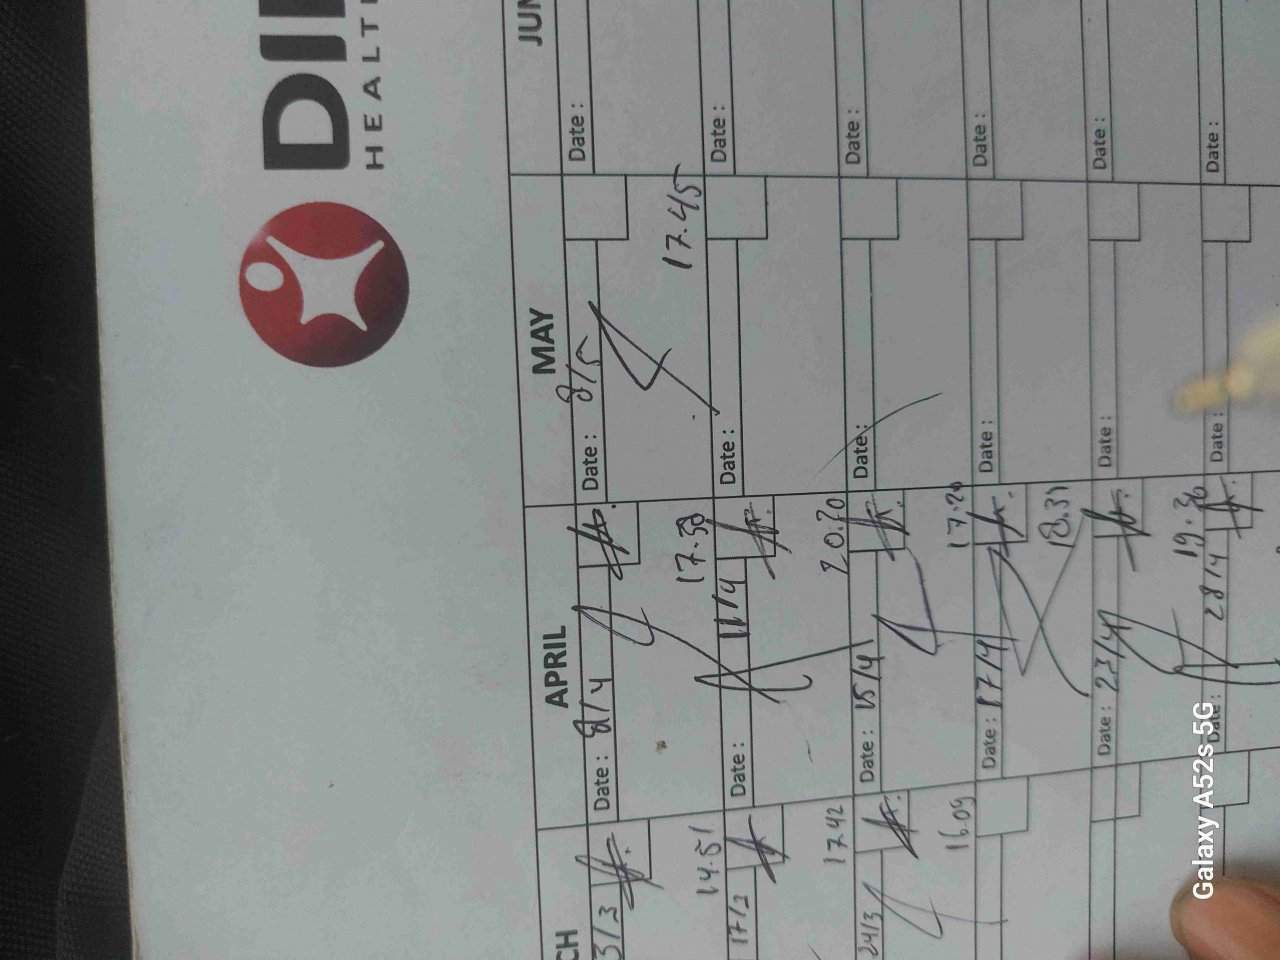 HEALT
CH
3/3
14.51
17/2
17.42
24/3
16.09
APRIL
Date : 8/4
17.38
Date : 11/4
20.20
Date : 15/4
17.20
Date : 17/4
18.31
Date : 23/4
19.36
Date : 28/4
MAY
Date : 8/5
17.45
Date :
Date :
Date :
Date :
Date :
JUN
Date :
Date :
Date :
Date :
Date :
Date :
Galaxy A52s 5G